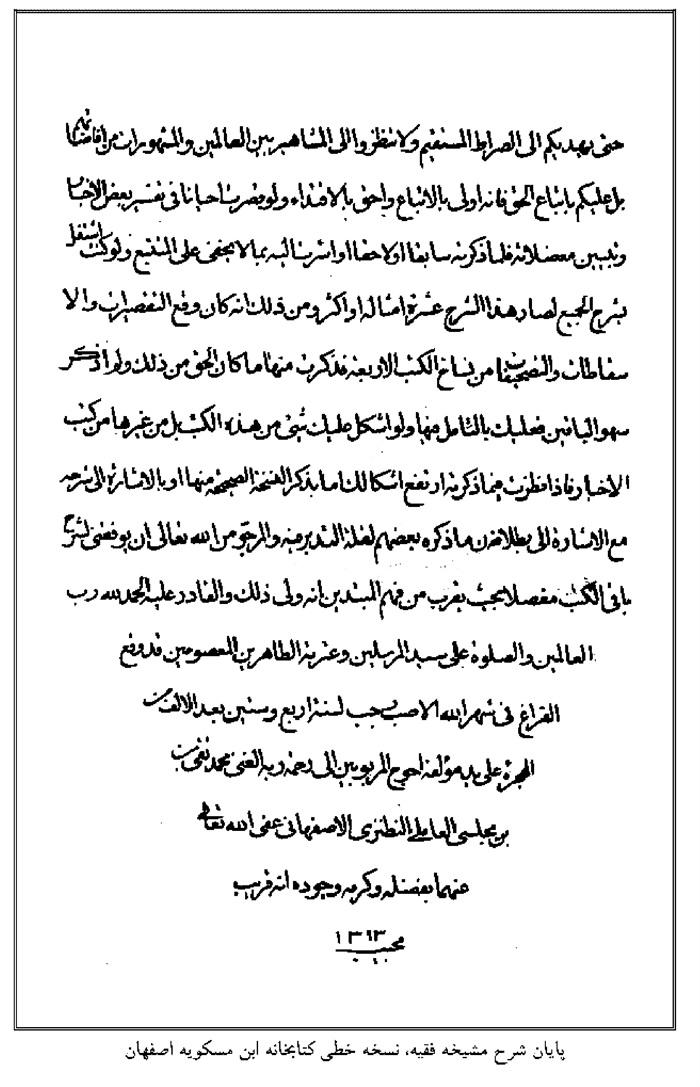 حتى يهديكم الى الصراط المستقيم ولا تنظروا الى المشاهير بين العالمين والمشهورات من افاضلهم
بل عليكم باتباع الحق فانه اولى بالاتباع واحق بالاقتداء ولو قصرت احيانا فى تفسير بعض الاخبار
وتبيين معضلاته فلما ذكرته سابقا او لاحقا او اشرت اليه بما لا يخفى على المتتبع ولو كنت اشتغل
بشرح الجميع لصار هذا الشرح عشرة امثاله او اكثر ومن ذلك انه كان وقع التقصيرات والا
سقاطات والتصحيفات من نساخ الكتب الاربعة فذكرت منها ما كان الحق من ذلك ولم اذكر
سهو الباقين فعليك بالتامل فيها ولو اشكل عليك شىء من هذه الكتب بل من غيرها من كتب
الاخبار فاذا نظرت فيما ذكرته ارتفع اشكالك اما بذكر النسخة الصحيحة منها او بالاشارة الى شرحه
مع الاشارة الى بطلان ما ذكره بعضهم لقلة التدبر فيه والمرجو من الله تعالى ان يوفقنى لشرح
باقى الكتب مفصلا بحيث يقرب من فهم المبتدين انه ولى ذلك والقادر عليه الحمد لله رب
العالمين والصلوة على سيد المرسلين وعترته الطاهرين المعصومين قد وقع
الفراغ فى شهر الله الاصب رجب لسنة اربع وستين بعد الالف من
الهجرة على يد مؤلفه احوج المربوبين الى رحمة ربه الغنى محمد تقى
بن مجلسى العاملى النطنزى الاصفهانى عفى الله تعالى
عنهما بفضله وكرمه وجوده انه قريب
مجيب ١٣٦٣
پایان شرح مشیخه فقیه، نسخه خطی کتابخانه ابن مسکویه اصفهان